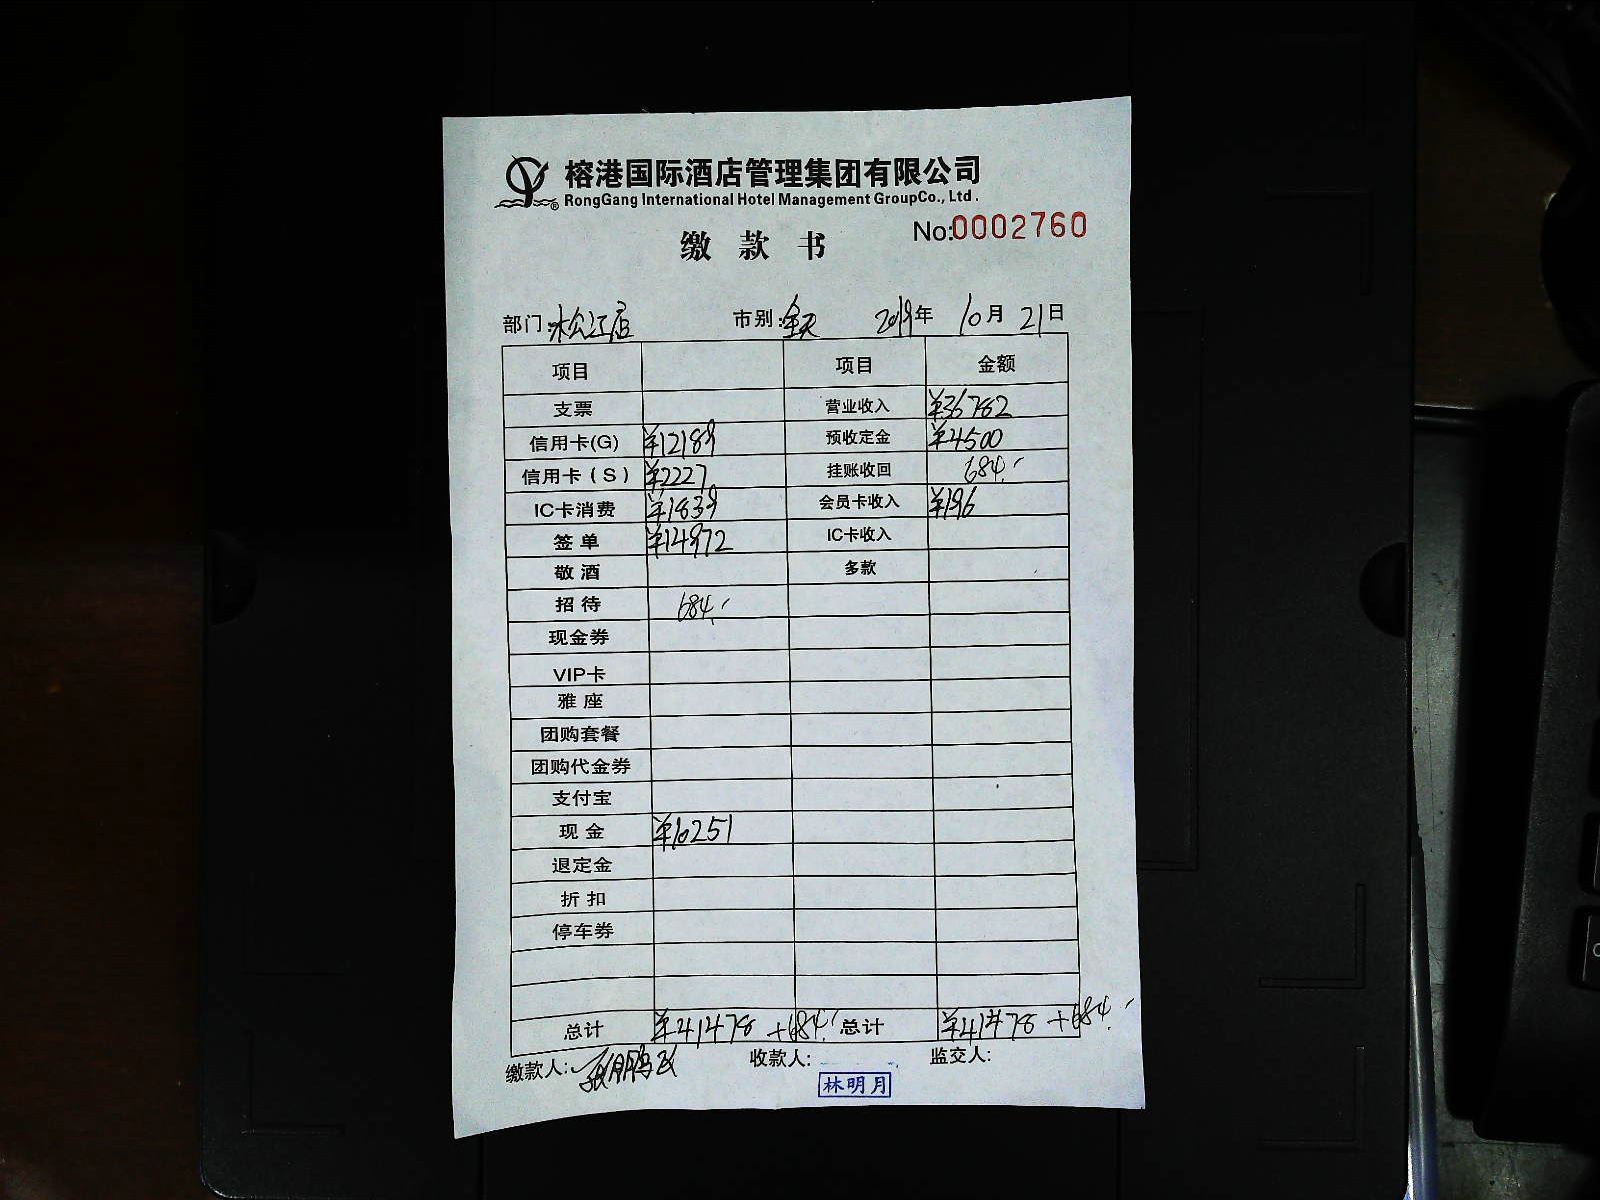 榕港国际酒店管理集团有限公司
RongGang International Hotel Management GroupCo., Ltd.
No:0002760
缴 款 书
部门:松江店 市别:全天 2019年 10月 21日
项目 项目 金额
支票 营业收入 ¥36782
信用卡(G) ¥12189 预收定金 ¥4500
信用卡(S) ¥2227 挂账收回 684.-
IC卡消费 ¥1839 会员卡收入 ¥196
签 单 ¥14972 IC卡收入
敬 酒 多款
招 待 684.-
现金券
VIP卡
雅 座
团购套餐
团购代金券
支付宝
现 金 ¥10251
退定金
折 扣
停车券
总计 ¥41478 +684.- 总计 ¥41478 +684.-
缴款人: 收款人: 监交人:
林明月